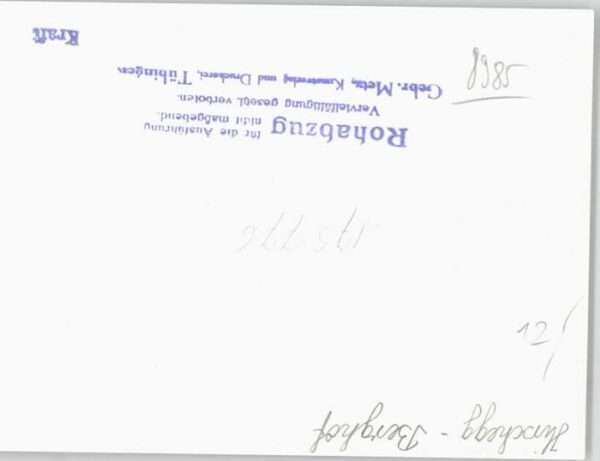 Hirschegg - Berghof
12/
Rohabzug
für die Ausführung
nicht maßgebend.
Vervielfältigung gesetzl. verboten.
Gebr. Metz, Kunstverlag und Druckerei, Tübingen.
Kraft